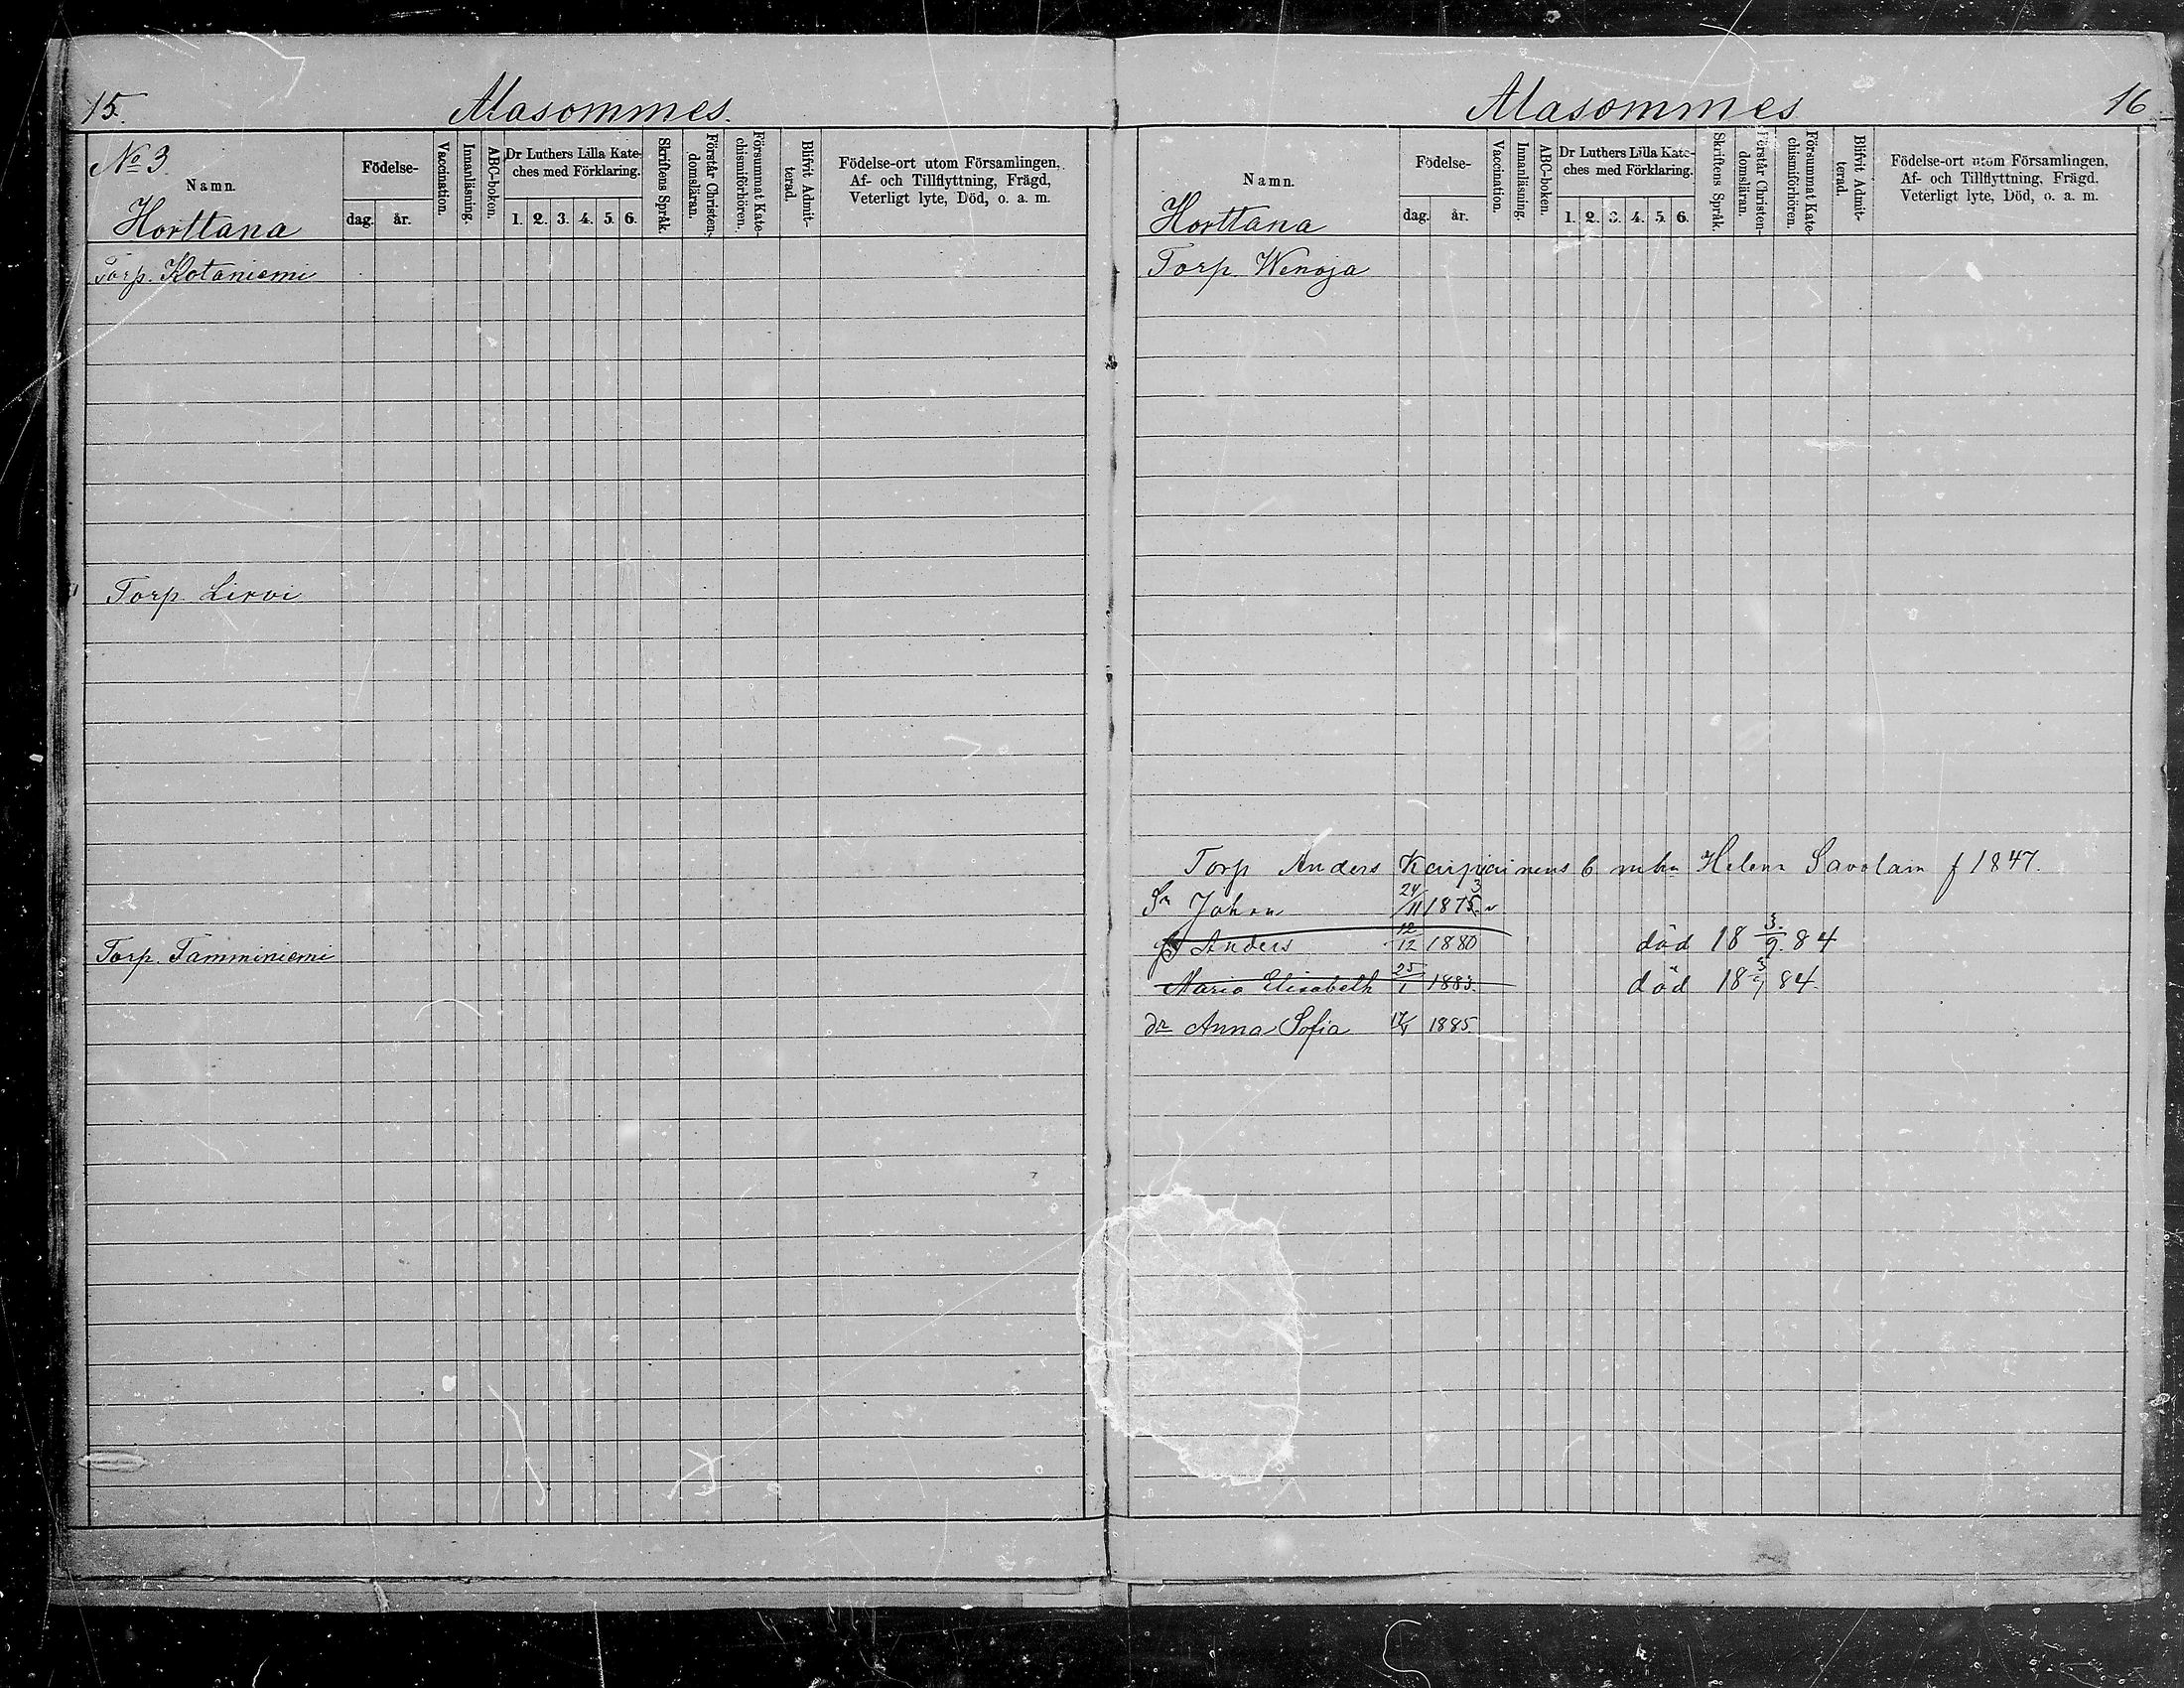 15.
Alasommes.
No 3.
Namn.
Horttana
Födelse-
dag. år.
Vaccination.
Innanläsning.
ABC-boken.
Dr Luthers Lilla Kate-
ches med Förklaring.
1. 2. 3. 4. 5. 6.
Skriftens Språk.
Förstår Christen-
domsläran.
Försummat Kate-
chismiförhören.
Blifvit Admit-
terad.
Födelse-ort utom Församlingen,
Af- och Tillflyttning, Frägd,
Veterligt lyte, Död, o. a. m.
Torp. Kotaniemi
Torp. Lirvi
Torp. Tamminiemi
Alasommes
16
Namn.
Horttana
Födelse-
dag. år.
Vaccination.
Innanläsning.
ABC-boken.
Dr Luthers Lilla Kate-
ches med Förklaring.
1. 2. 3. 4. 5. 6.
Skriftens Språk.
Förstår Christen-
domsläran.
Försummat Kate-
chismiförhören.
Blifvit Admit-
terad.
Födelse-ort utom Församlingen,
Af- och Tillflyttning, Frägd.
Veterligt lyte, Död, o. a. m.
Torp. Wenoja
Torp Anders Karpiainens Helena Savolain f 1847.
Sn Johan 24/11 1875
Anders 12/12 1880 död 18 3/9. 84
Maria Elisabeth 25/1 1883. död 18 84.
dr Anna Sofia 1885